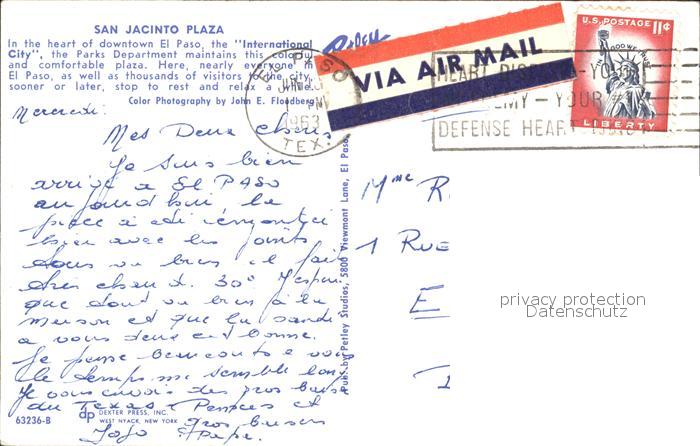 SAN JACINTO PLAZA
In the heart of downtown El Paso, the "International
City", the Parks Department maintains this colorful
and comfortable plaza. Here, nearly everyone in
El Paso, as well as thousands of visitors to the city,
sooner or later, stop to rest and relax a while.
Color Photography by John E. Flodberg
VIA AIR MAIL
U.S. POSTAGE 11¢
IN GOD WE TRUST
LIBERTY
EL PASO
PM
1963
TEX.
HEART DISEASE
ENEMY - YOUR
DEFENSE HEART FUND
Mercredi.
Mes Deux chéris
Je suis bien
arrivé à El PASO
aujourd'hui la
pièce a été
bien avec les joints
tous va bien il fait
très chaud. 30°
que tout va bien à la
maison et que la santé
a vous deux est bonne.
Je pense beaucoup a vous
le temps me semble long
Je vous envois des gros baisers
du Texas. Pensées et
gros baisers
Jojo Pépé.
Mme R
1 Rue
E
Pub. by Petley Studios, 5800 Viewmont Lane, El Paso,
privacy protection
Datenschutz
63236-B
dp DEXTER PRESS, INC.
WEST NYACK, NEW YORK